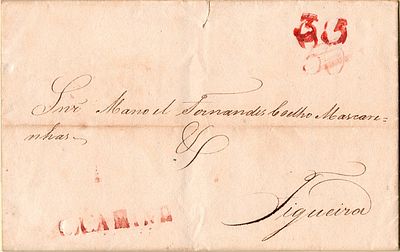 35
Snr Manoel Fernandes Coelho Mascare-
nhas
Figueira